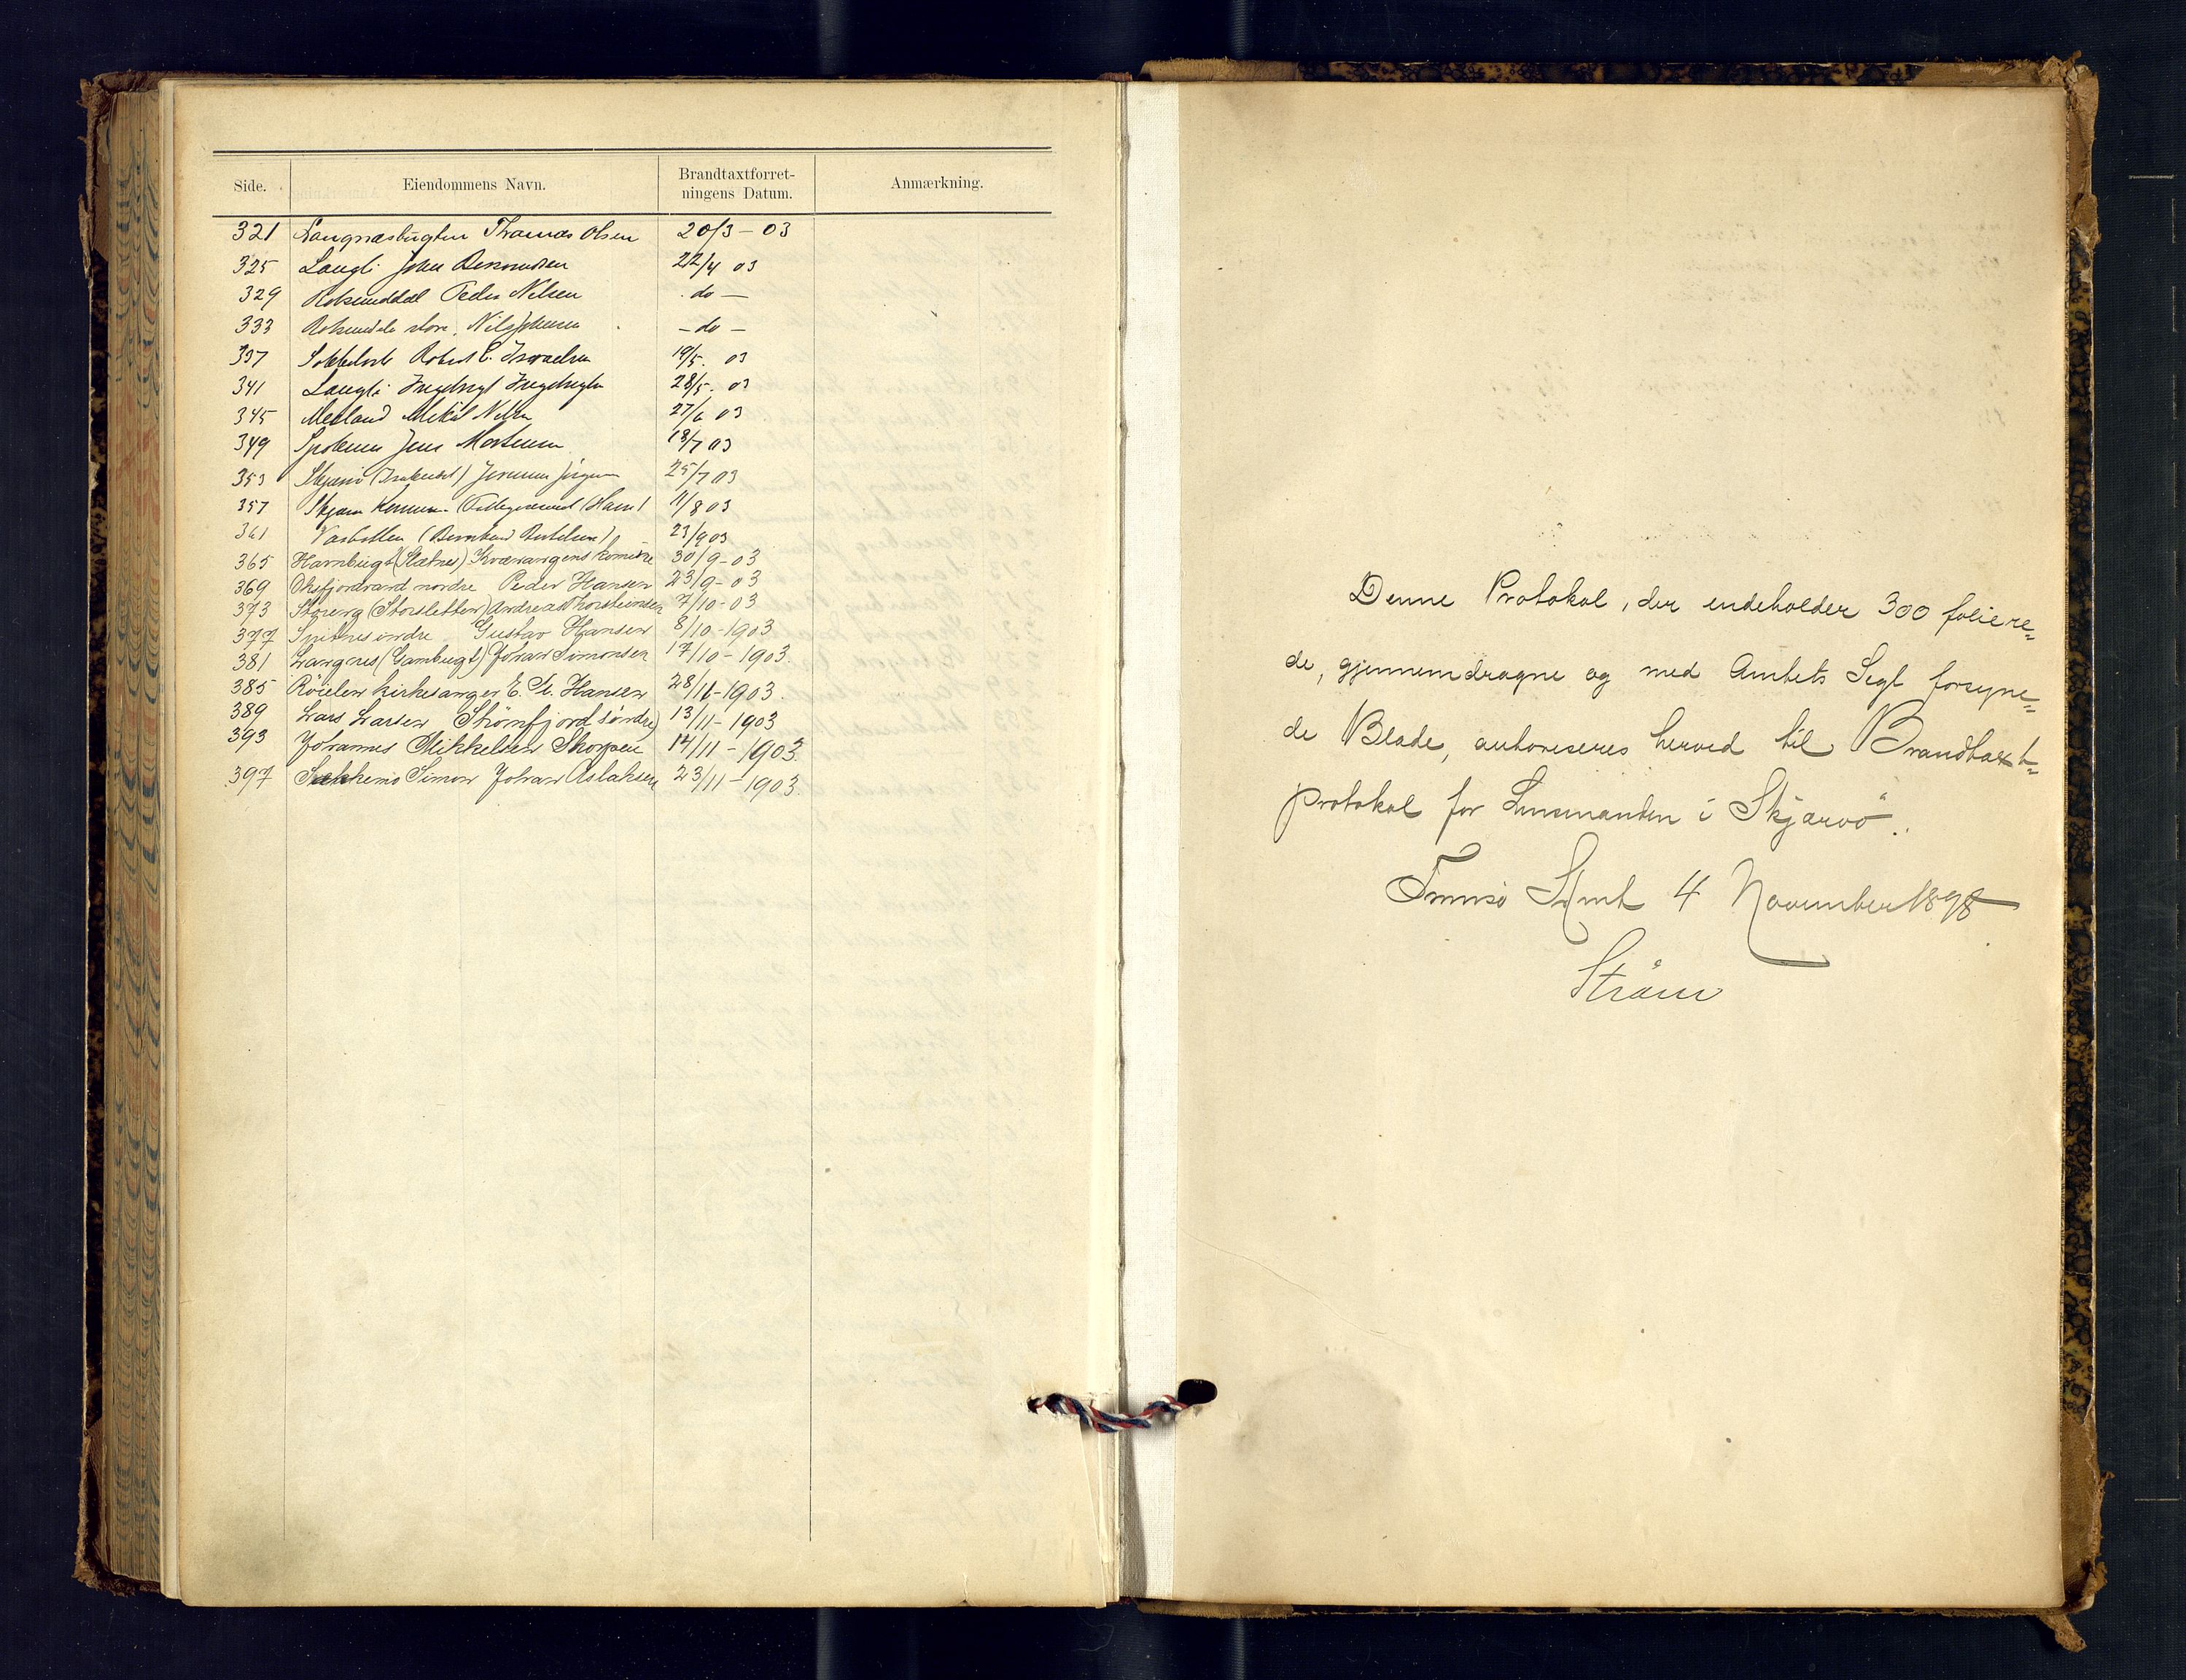 Side. Eiendommens Navn. Brandtaxtforret-
ningens Datum. Anmærkning.
321 Langnæsbugten Thomas Olsen 20/3 – 03
325 Langli John 22/4 03
329 Peder Nilsen do –
333 store. Nils Johnsen – do –
337 Robert E. Israelsen 19/5. 03
341 Langli 28/5. 03
345 Meiland Mikal Nilsen 27/6 03
349 Spolenes Jens Mortensen 18/7 03
353 Skjærvö 25/7 03
357 Skjærvö (Havn) 11/8 03
361 Vasbotten (Berntsen) 23/9 03
365 Havnbugt (Slætnes) Kvænangens komune 30/9 – 03
369 Oksfjordvand nordre Peder Hansen 23/9 – 03
373 Storeng (Storsletten) Andreas Thorsteinsen 7/10 – 03
377 Spitnes indre Gustav Hansen 8/10 – 1903
381 Langnes (Gambugt) Johan Simonsen 17/10 – 1903.
385 Röielen kirkesanger E. St. Hansen 28/11 – 1903.
389 Lars Larsen Strömfjord söndre) 13/11 – 1903
393 Johannes Mikkelsen Skorpen 14/11 – 1903.
397 Simon Johan Aslaksen 23/11 – 1903.
Denne Protokol, der indeholder 300 foliere=
de, gjennemdragne og med Amtets Segl forsyne=
de Blade, autoriseres herved til Brandtaxt=
protokol for Lensmanden i Skjærvö.
Tromsö Amt 4 November 1898
Ström